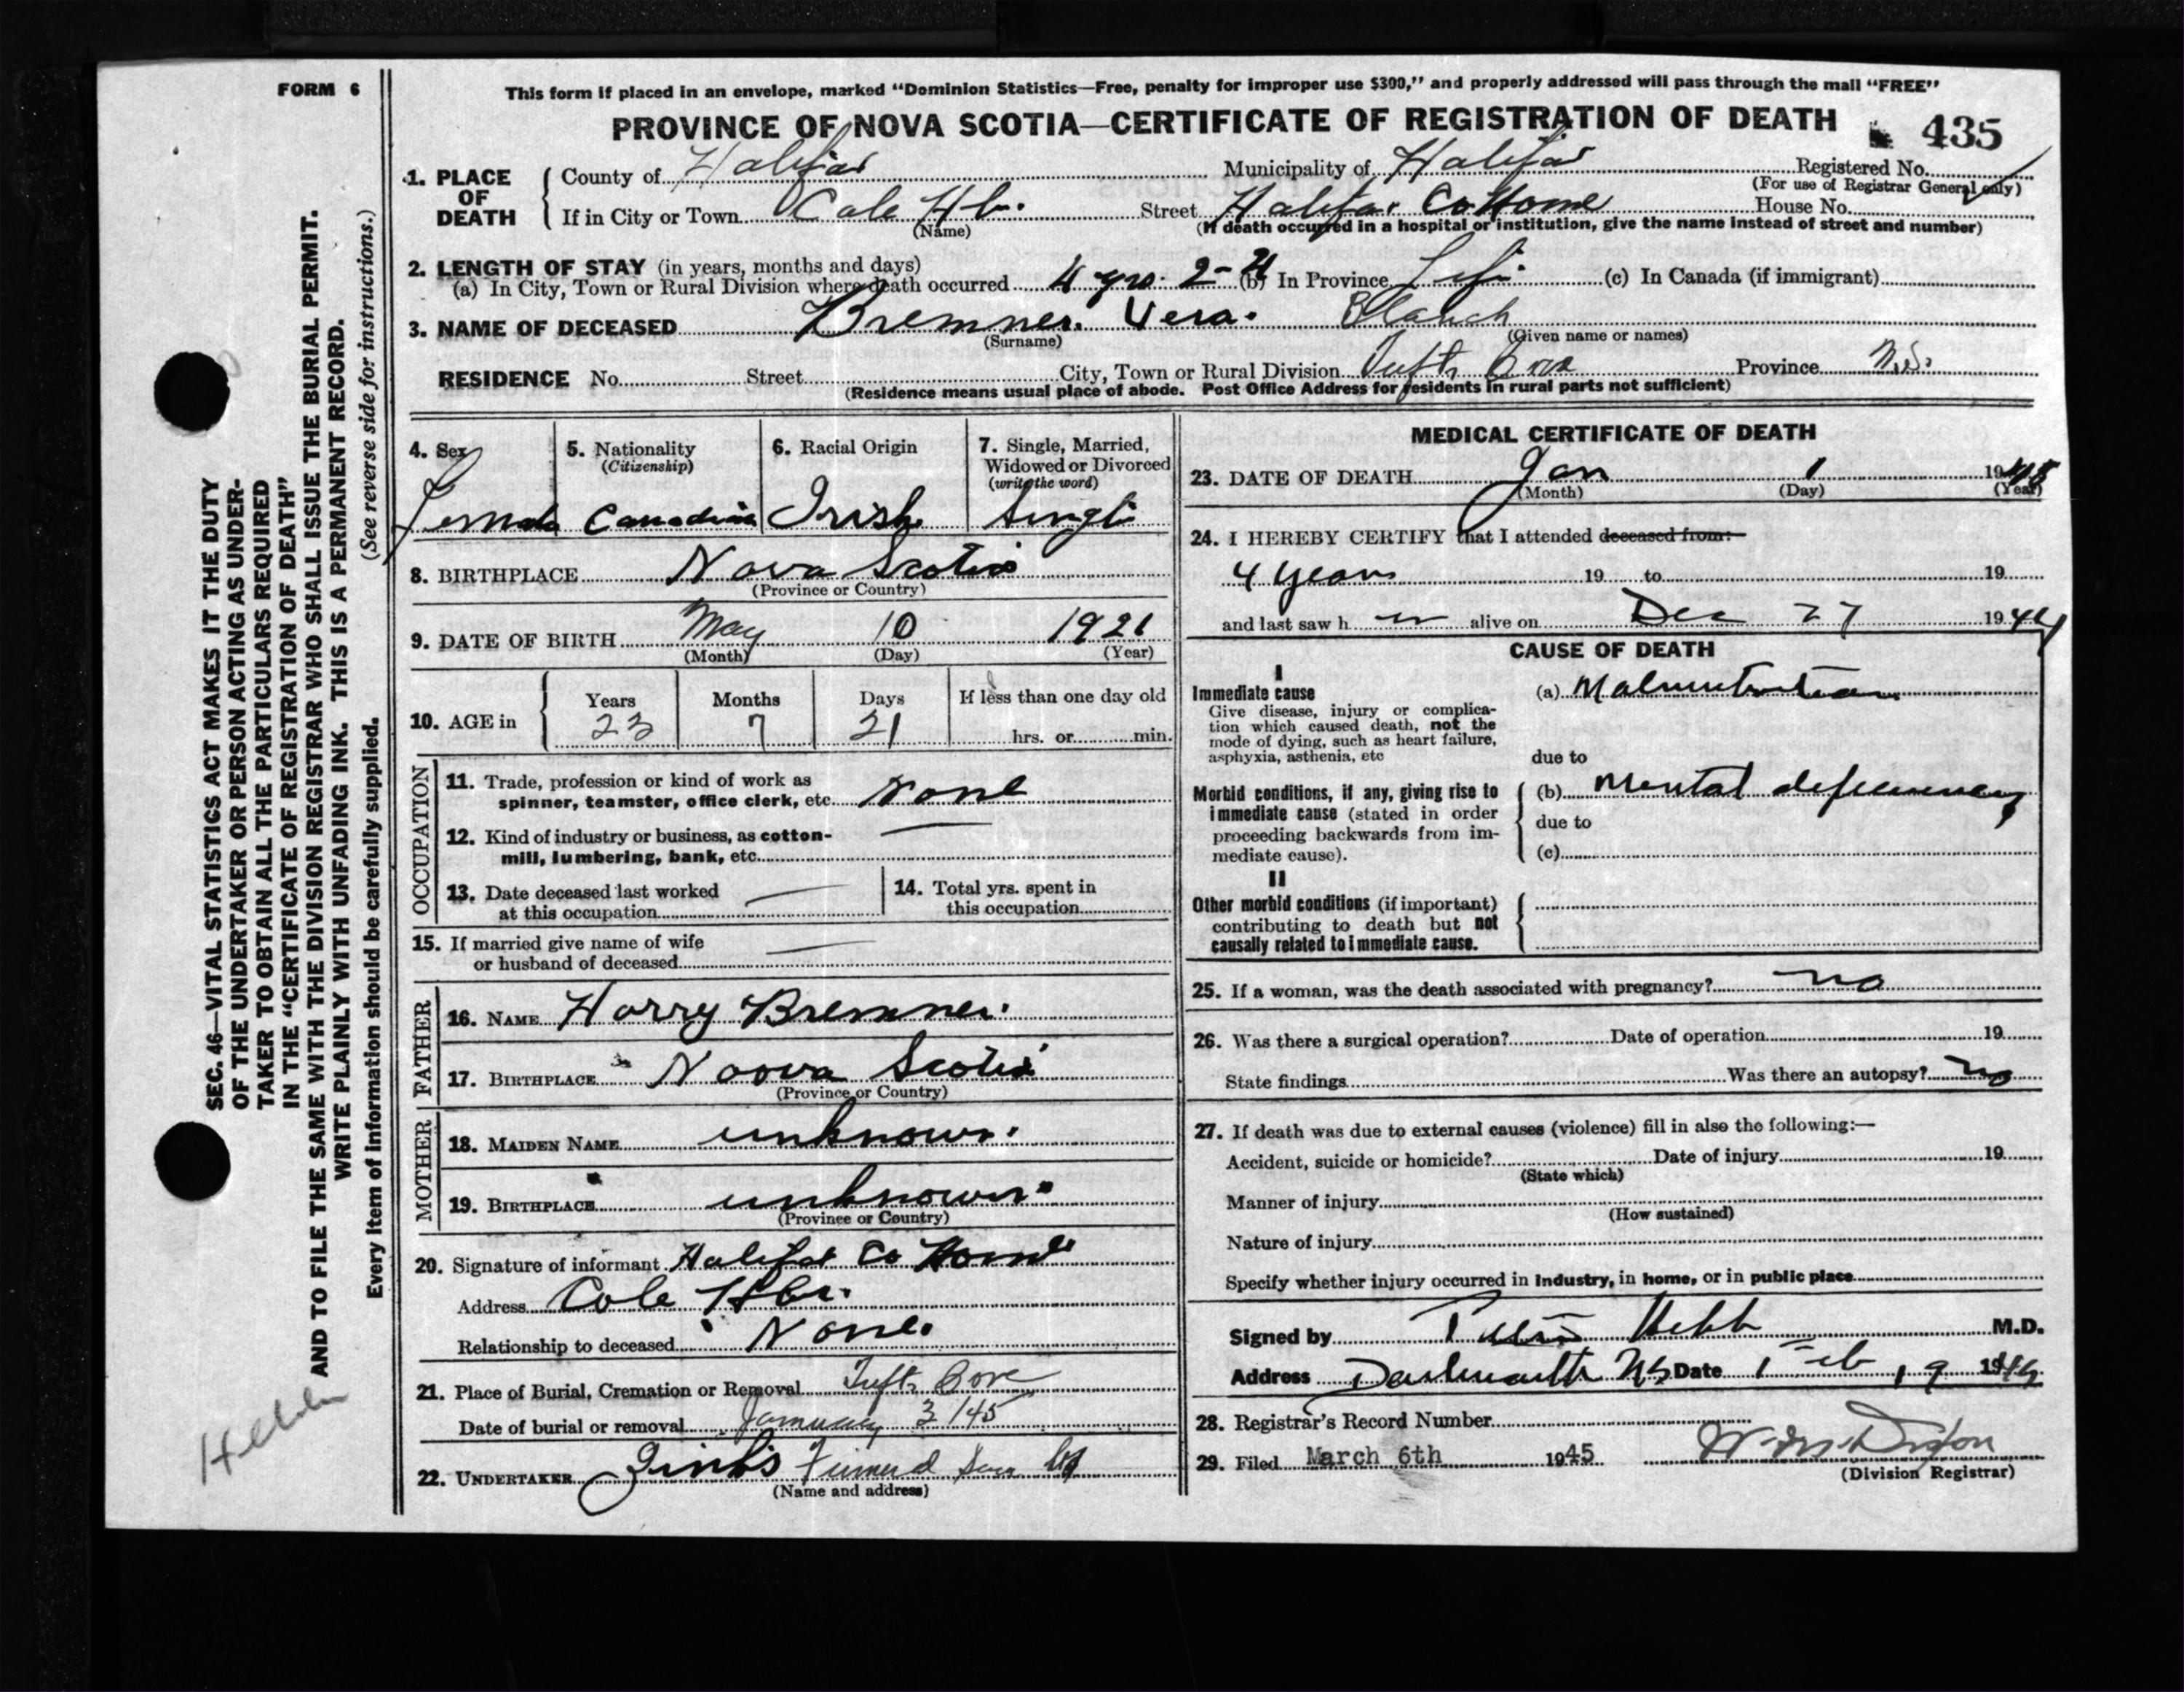 FORM 6
SEC. 46—VITAL STATISTICS ACT MAKES IT THE DUTY
OF THE UNDERTAKER OR PERSON ACTING AS UNDER-
TAKER TO OBTAIN ALL THE PARTICULARS REQUIRED
IN THE "CERTIFICATE OF REGISTRATION OF DEATH"
AND TO FILE THE SAME WITH THE DIVISION REGISTRAR WHO SHALL ISSUE THE BURIAL PERMIT.
WRITE PLAINLY WITH UNFADING INK. THIS IS A PERMANENT RECORD.
Every item of information should be carefully supplied. (See reverse side for instructions.)
This form if placed in an envelope, marked "Dominion Statistics—Free, penalty for improper use $300," and properly addressed will pass through the mail "FREE"
PROVINCE OF NOVA SCOTIA—CERTIFICATE OF REGISTRATION OF DEATH 435
1. PLACE OF DEATH
County of Halifax Municipality of Halifax Registered No.
(For use of Registrar General only)
If in City or Town Cole Hbr. Street Halifax Co Home House No.
(Name) (If death occurred in a hospital or institution, give the name instead of street and number)
2. LENGTH OF STAY (in years, months and days)
(a) In City, Town or Rural Division where death occurred 4 yrs. 2-21 (b) In Province Life (c) In Canada (if immigrant)
3. NAME OF DECEASED Bremner. Vera. Blanch
(Surname) (Given name or names)
RESIDENCE No. Street City, Town or Rural Division Tufts Cove Province N.S.
(Residence means usual place of abode. Post Office Address for residents in rural parts not sufficient)
4. Sex
Female
5. Nationality
(Citizenship)
Canadian
6. Racial Origin
Irish
7. Single, Married,
Widowed or Divorced
(write the word)
Single
8. BIRTHPLACE Nova Scotia
(Province or Country)
9. DATE OF BIRTH May 10 1921
(Month) (Day) (Year)
10. AGE in
Years Months Days If less than one day old
23 7 21 hrs. or min.
OCCUPATION
11. Trade, profession or kind of work as
spinner, teamster, office clerk, etc. None
12. Kind of industry or business, as cotton-
mill, lumbering, bank, etc. —
13. Date deceased last worked
at this occupation —
14. Total yrs. spent in
this occupation
15. If married give name of wife
or husband of deceased —
FATHER
16. NAME Harry Bremner.
17. BIRTHPLACE Noova Scotia
(Province or Country)
MOTHER
18. MAIDEN NAME unknown.
19. BIRTHPLACE unknown.
(Province or Country)
20. Signature of informant Halifax Co Home
Address Cole Hbr.
Relationship to deceased None.
21. Place of Burial, Cremation or Removal Tufts Cove
Date of burial or removal January 3/45
22. UNDERTAKER Zink's Funeral
(Name and address)
MEDICAL CERTIFICATE OF DEATH
23. DATE OF DEATH Jan 1 1945
(Month) (Day) (Year)
24. I HEREBY CERTIFY that I attended deceased from:
4 years 19 to 19
and last saw h er alive on Dec 27 1944
CAUSE OF DEATH
I
Immediate cause
Give disease, injury or complica-
tion which caused death, not the
mode of dying, such as heart failure,
asphyxia, asthenia, etc
(a) Malnutrition
due to
Morbid conditions, if any, giving rise to
immediate cause (stated in order
proceeding backwards from im-
mediate cause).
(b) Mental deficiency
due to
(c)
II
Other morbid conditions (if important)
contributing to death but not
causally related to immediate cause.
25. If a woman, was the death associated with pregnancy? no
26. Was there a surgical operation? Date of operation 19
State findings Was there an autopsy? no
27. If death was due to external causes (violence) fill in also the following:—
Accident, suicide or homicide? Date of injury 19
(State which)
Manner of injury
(How sustained)
Nature of injury
Specify whether injury occurred in industry, in home, or in public place
Signed by Hebb M.D.
Address Dartmouth NS Date Feb 19
28. Registrar's Record Number
29. Filed March 6th 1945
(Division Registrar)